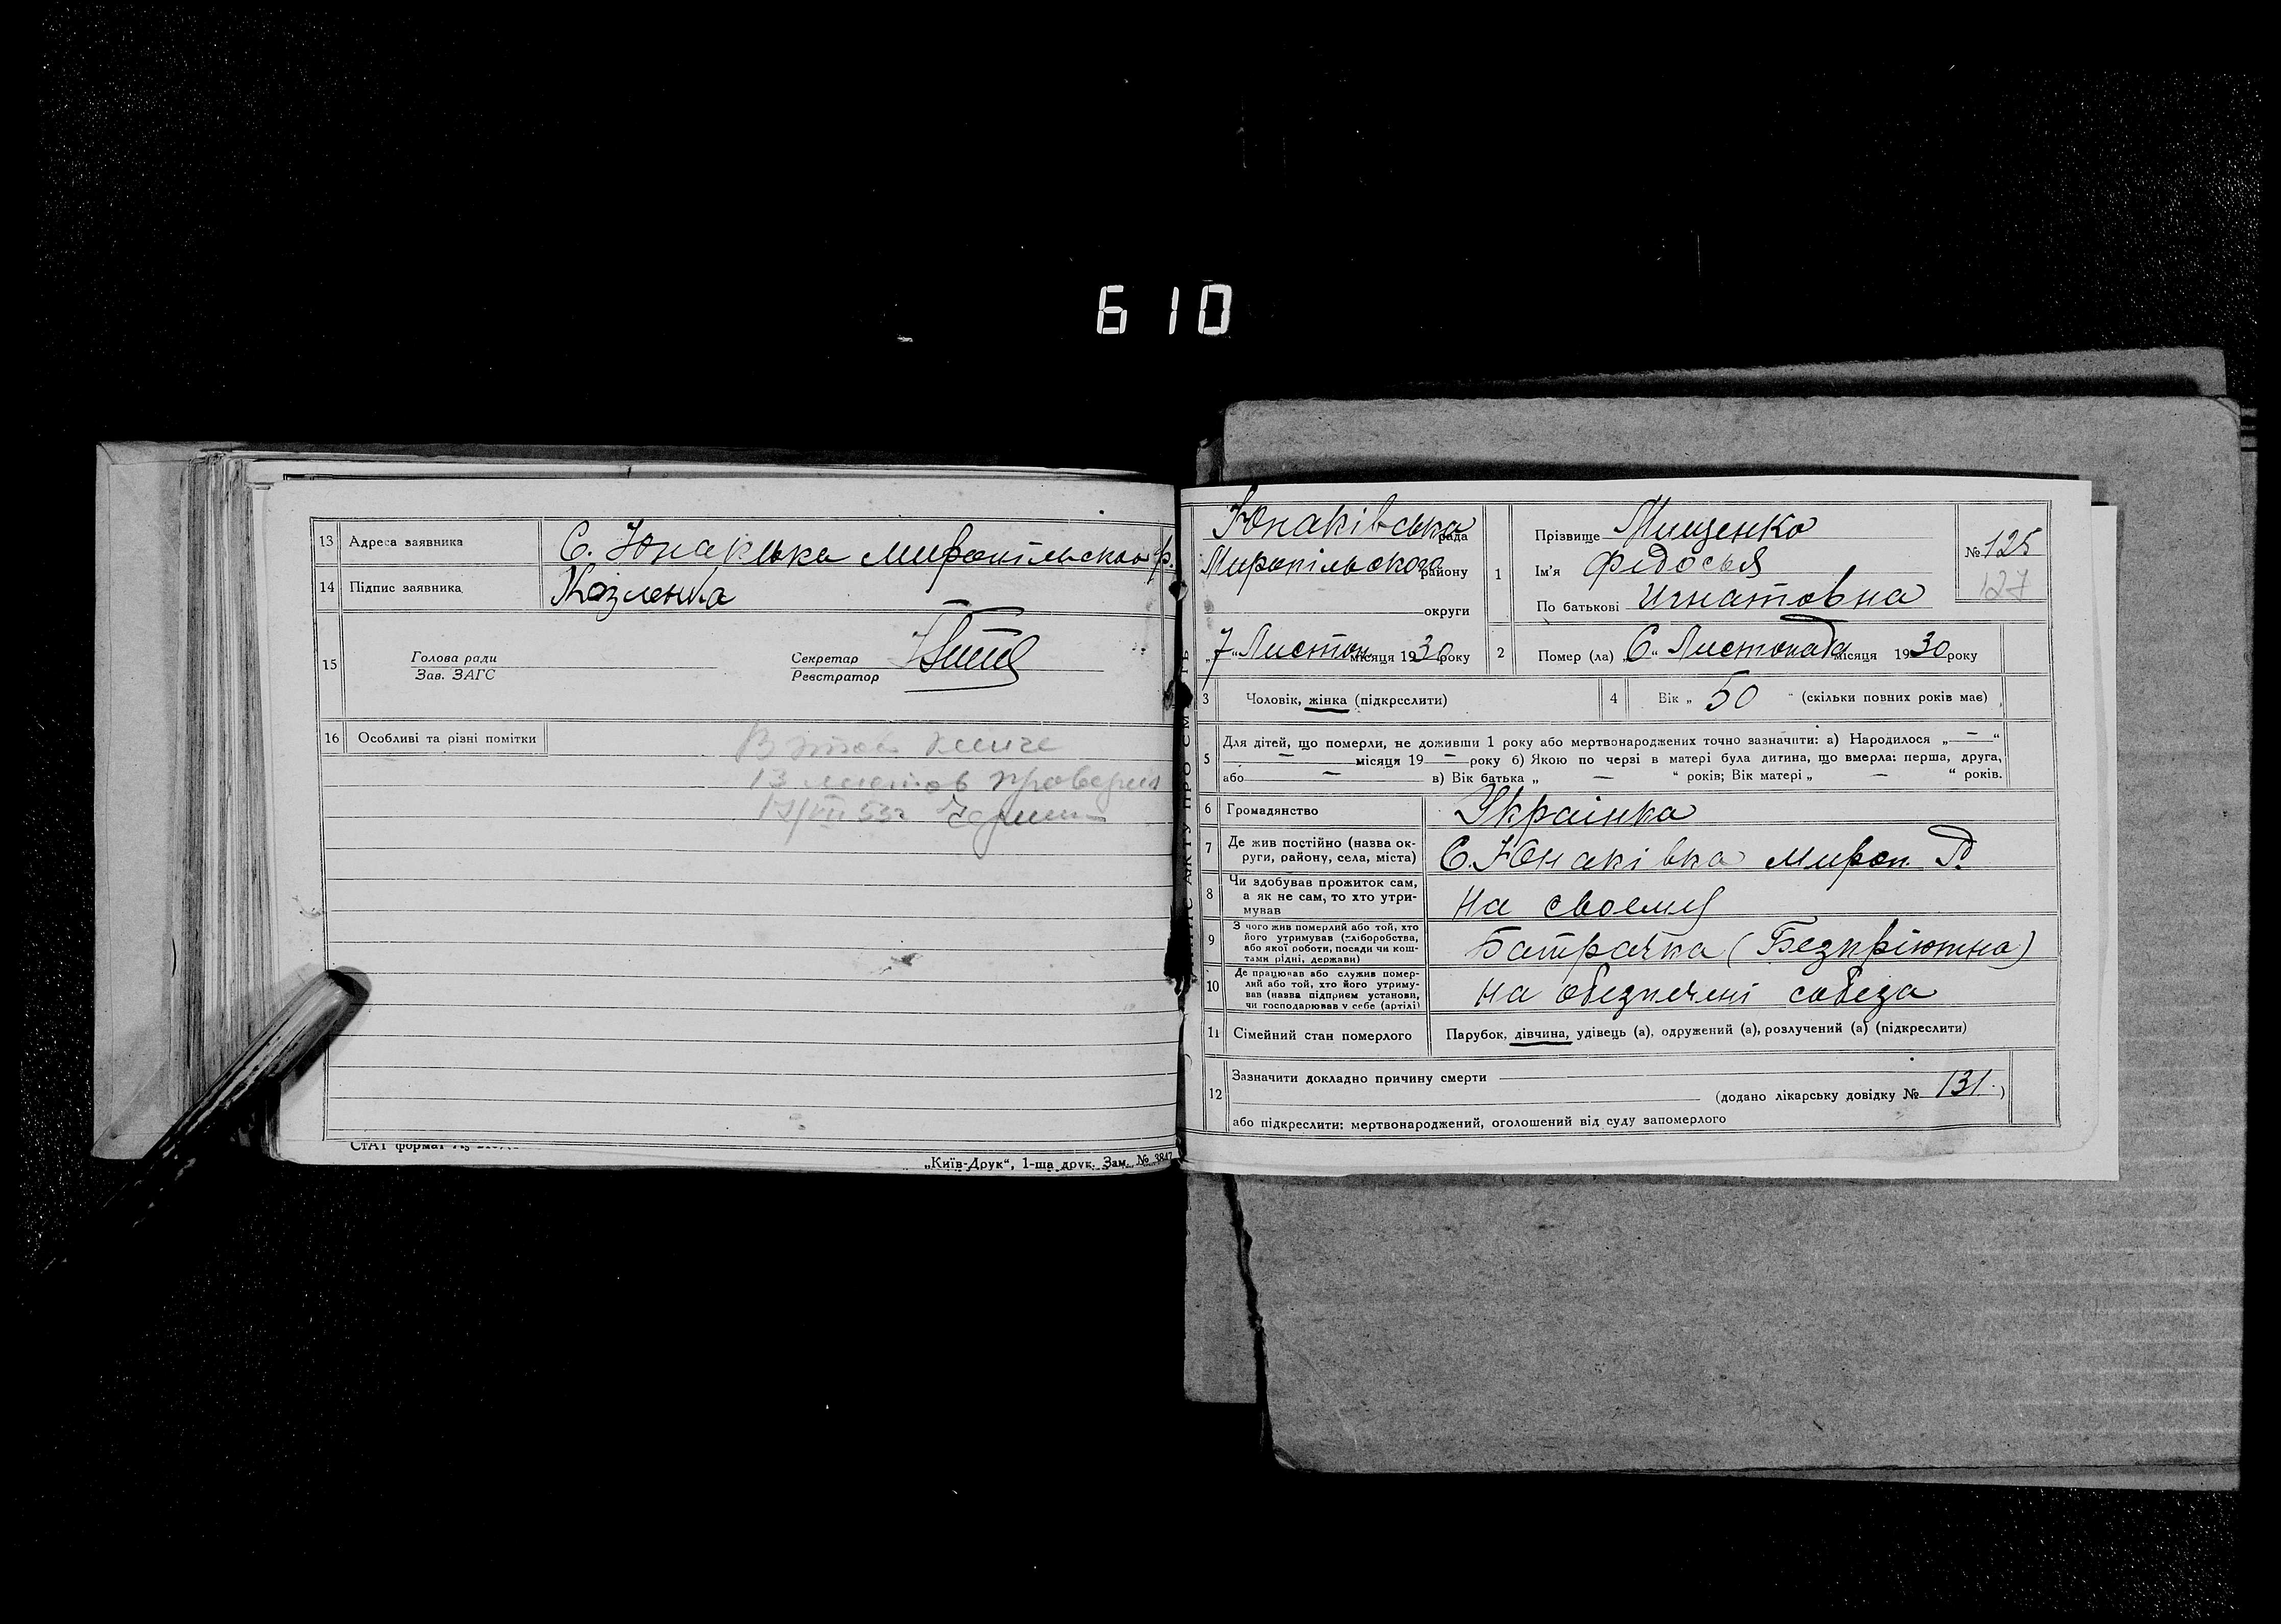 610
13 Адреса заявника С. Юнаківка Миропільского р.
14 Підпис заявника Козленка
15 Голова ради
Зав. ЗАГС
Секретар
Реєстратор
16 Особливі та різні помітки
В этой книге
13 листов проверил
17/VII 53г
СтАТ формат
„Київ-Друк“, 1-ша друк. Зам. № 3847
Юнаківська рада
Миропільского району
округи
„7“ Листоп. місяця 1930 року
1 Прізвище Мищенко
Ім'я Федосья
По батькові Игнатовна
№ 125
127
2 Помер (ла) „6“ Листопада місяця 1930 року
3 Чоловік, жінка (підкреслити)
4 Вік „ 50 “ (скільки повних років має)
5 Для дітей, що померли, не доживши 1 року або мертвонароджених точно зазначити: а) Народилося „ — “
— місяця 19 — року б) Якою по черзі в матері була дитина, що вмерла: перша, друга,
або — в) Вік батька „ — “ років; Вік матері „ — “ років.
6 Громадянство Украінка
7 Де жив постійно (назва округи, району, села, міста) С. Юнаківка Мироп. Р.
8 Чи здобував прожиток сам, а як не сам, то хто утримував На своему
9 З чого жив померлий або той, хто його утримував (хліборобства, або якої роботи, посади чи коштами рідні, держави) Батрачка (Безпріютна)
10 Де працював або служив померлий або той, хто його утримував (назва підприєм установи, чи господарював у себе (артілі) на обезпечені собеза
11 Сімейний стан померлого Парубок, дівчина, удівець (а), одружений (а), розлучений (а) (підкреслити)
12 Зазначити докладно причину смерти
(додано лікарську довідку № 131.)
або підкреслити: мертвонароджений, оголошений від суду запомерлого